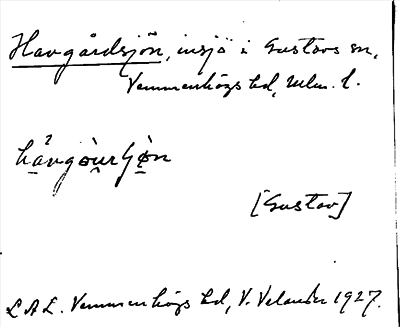 Havgårdsjön, insjö i Gustavs sn,
Vemmenhögs hd, Mlm. l.
[Gustav]
L.A.L. Vemmenhögs hd, V. Velander 1927.